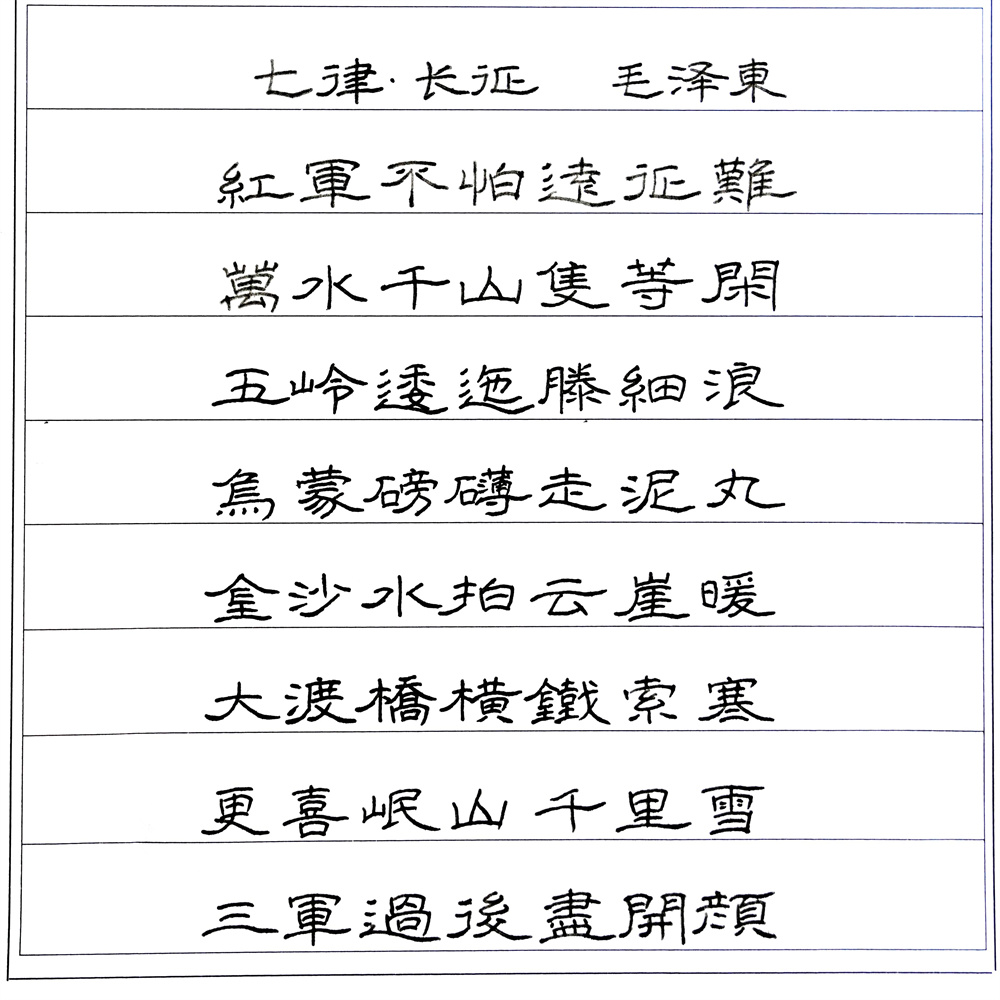 七律·长征 毛泽東
紅軍不怕遠征難
萬水千山隻等閑
五岭逶迤滕細浪
烏蒙磅礴走泥丸
金沙水拍云崖暖
大渡橋橫鐵索寒
更喜岷山千里雪
三軍過後盡開顔